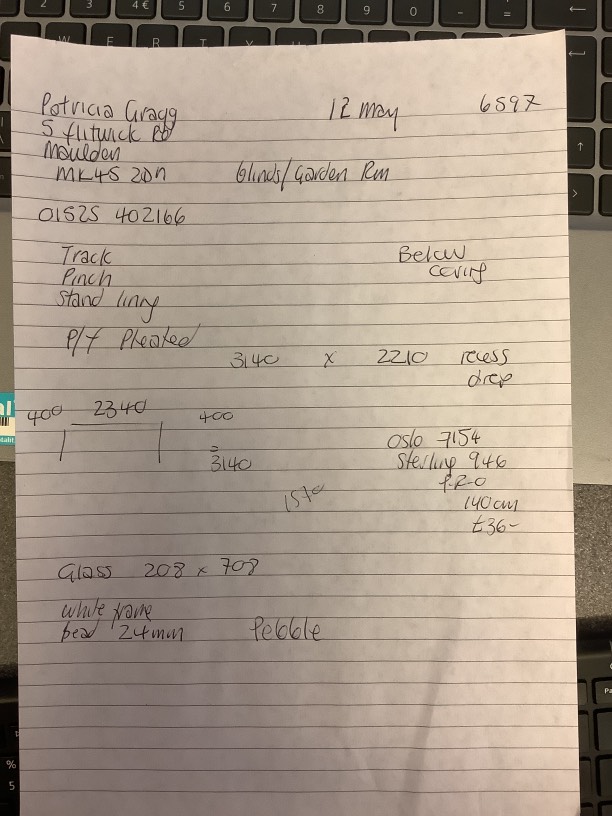 Patricia Gragg 12 May 6597
5 flitwick Rd
Maulden
MK45 2DN blinds/Garden Rm
01525 402166
Track Below
Pinch coving
Stand lining
P/F Pleated
3140 x 2210 recess
drop
400 2340 400
=
3140
Oslo 7154
Sterling 946
P.R.O
140cm
£36-
1570
Glass 208 x 708
white frame
bead 24mm Pebble